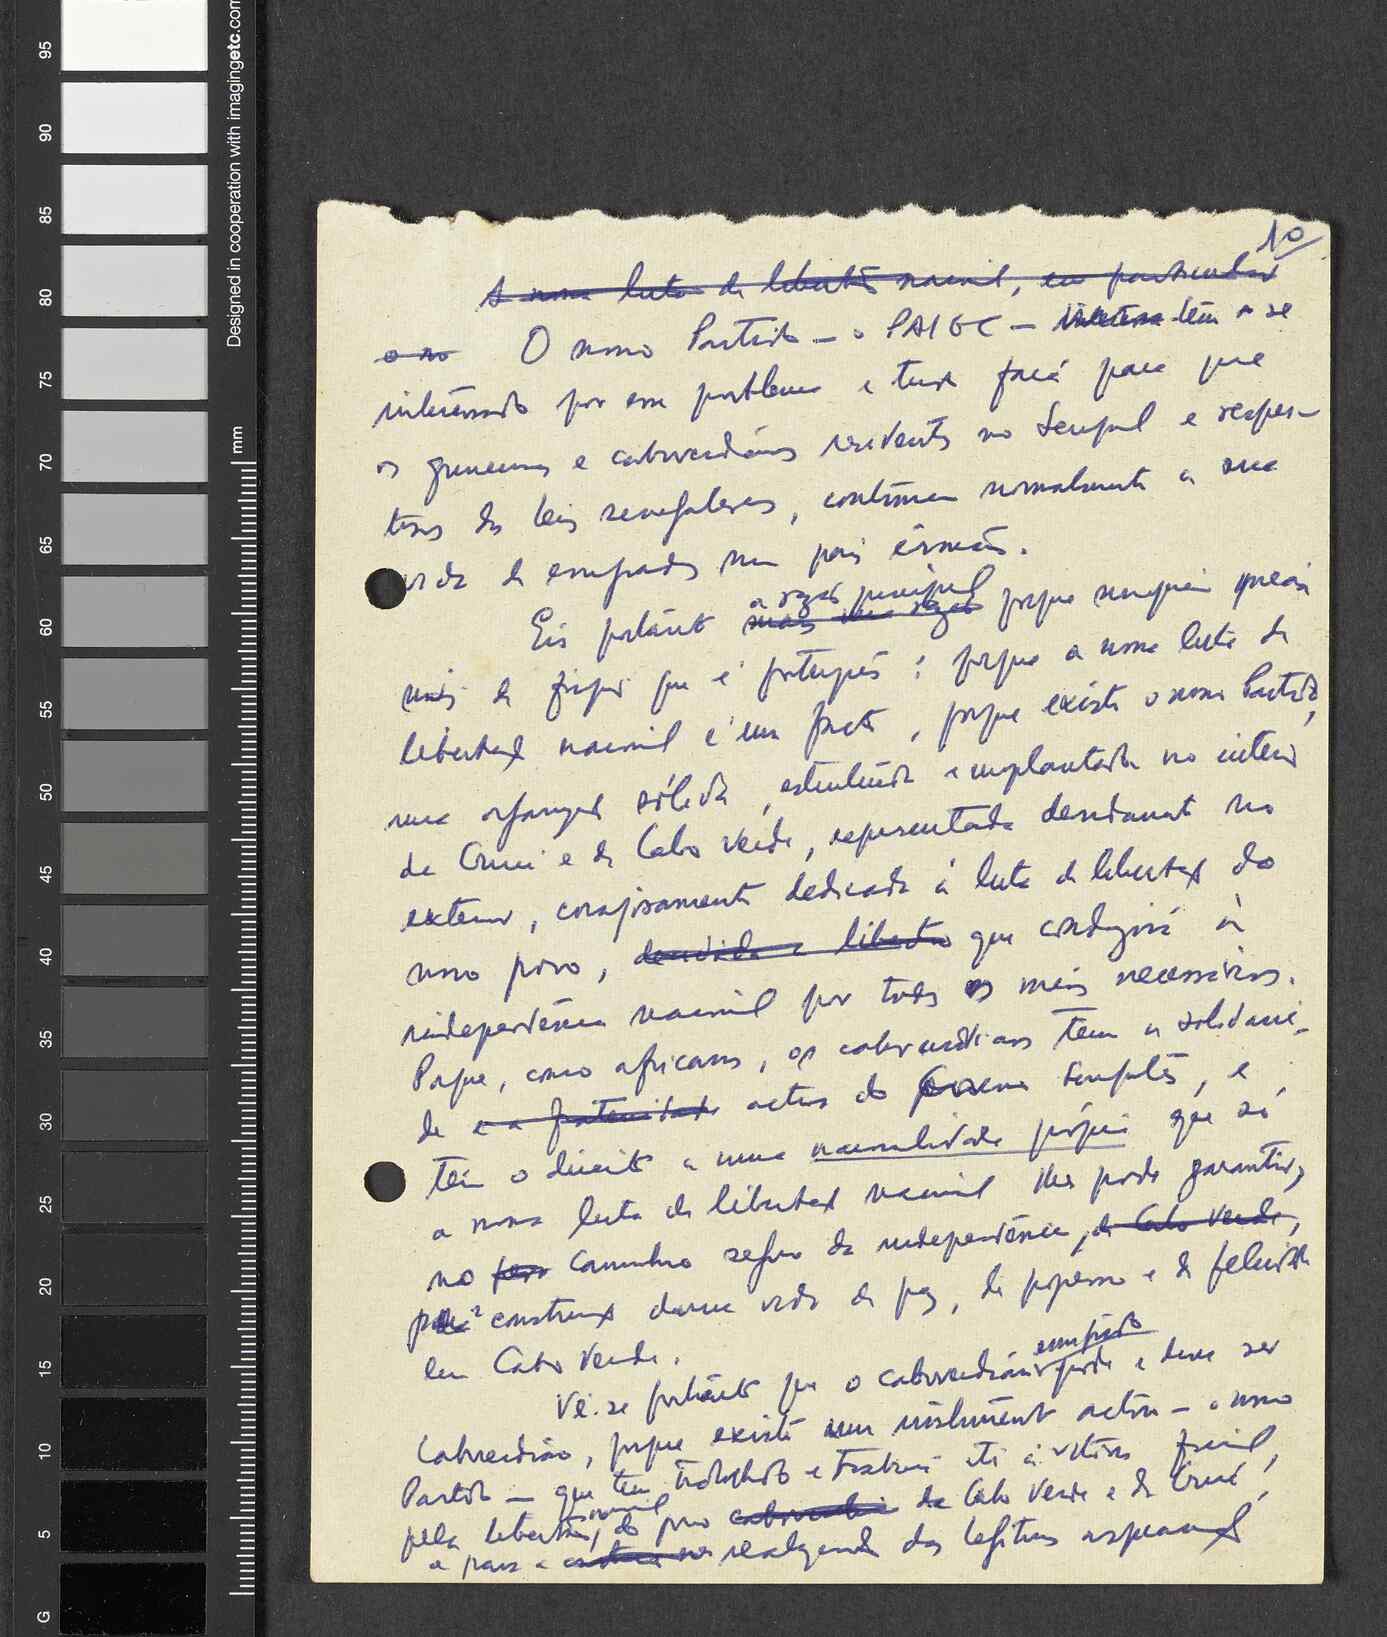 10
A nossa luta de libertação nacional, em particular
o no O nosso Partido — o PAIGC — tem-se
interessado por esse problema e tudo fará para que
os guineenses e caboverdianos residentes no Senegal e respei-
tosos das leis senegalesas, continuem normalmente a sua
vida de emigrados num país irmão.
Eis portanto a razão principal porque ninguém quererá
mais de fingir que é português: porque a nossa luta de
libertação nacional é um facto, porque existe o nosso Partido,
uma organização sólida, estruturada e implantada no interior
da Guiné e de Cabo Verde, representada no
exterior, corajosamente dedicada à luta de libertação do
nosso povo, que conduzirá à
independência nacional por todos os meios necessários.
Porque, como africanos, os caboverdianos têm a solidarie-
de e a fraternidade activa do Governo Senegalês, e
têm o direito a uma nacionalidade própria que só
a nossa luta de libertação nacional lhes pode garantir,
no caminho seguro da independência, de Cabo Verde,
para construção duma vida de paz, de progresso e de felicidade
em Cabo Verde.
Vê-se portanto que o caboverdiano emigrado pode e deve ser
Caboverdiano, porque existe um instrumento activo — o nosso
Partido — que tem trabalhado e trabalhará até à vitória final,
pela libertação nacional do povo de Cabo Verde e da Guiné,
e para a realização das legítimas aspirações
Designed in cooperation with imagingetc.com
mm
95
90
85
80
75
70
65
60
55
50
45
40
35
30
25
20
15
10
5
G